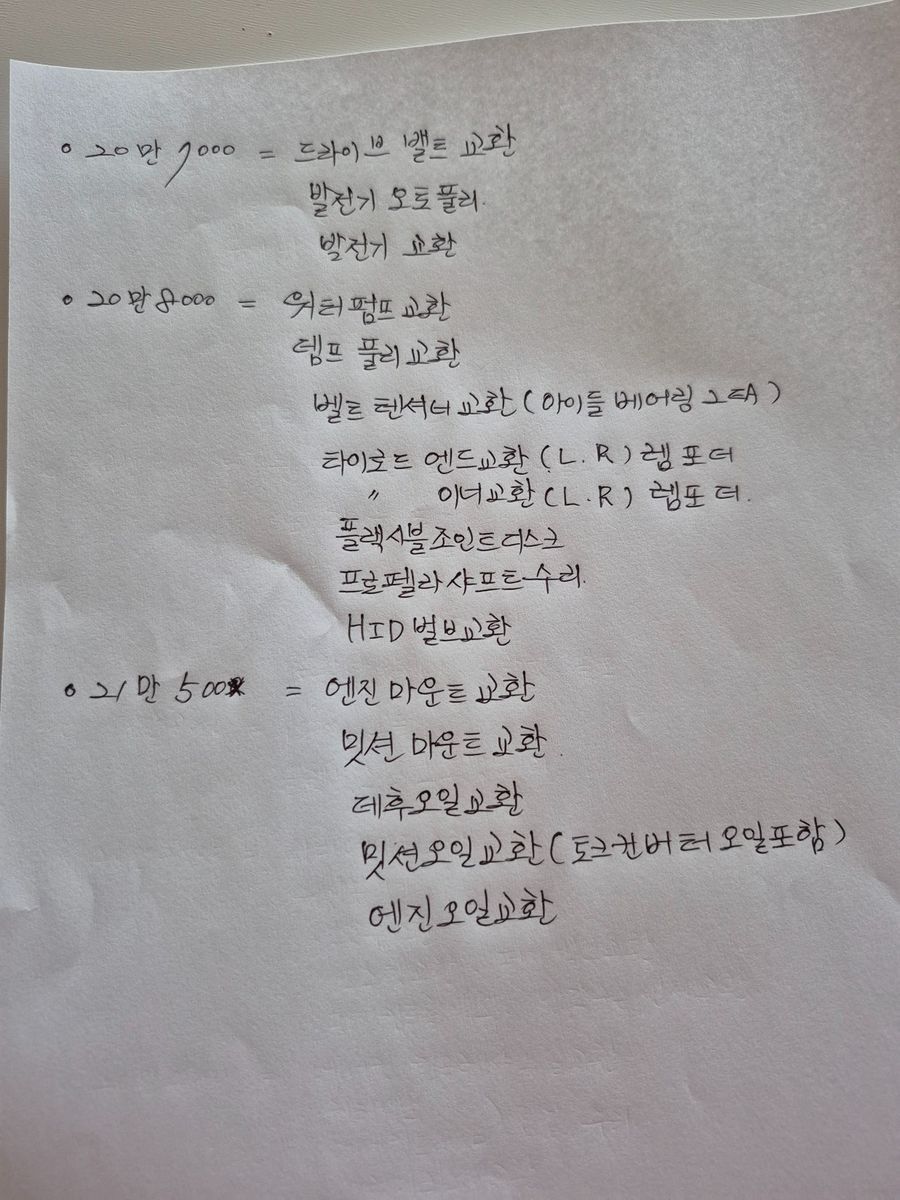 • 20만 7000 = 드라이브 밸트 교환
발전기 오토풀리.
발전기 교환
• 20만 8000 = 워터펌프교환
뎀프 풀리교환
벨트 텐셔너교환(아이들 베어링 2EA)
타이로드 엔드교환(L.R) 렘포더
〃 이너교환(L.R) 렘포더.
플랙시블조인트디스크
프로펠라샤프트수리.
HID벌브교환
• 21만 500 = 엔진마운트교환
밋션마운트교환.
데후오일교환
밋션오일교환(토크컨버터오일포함)
엔진오일교환